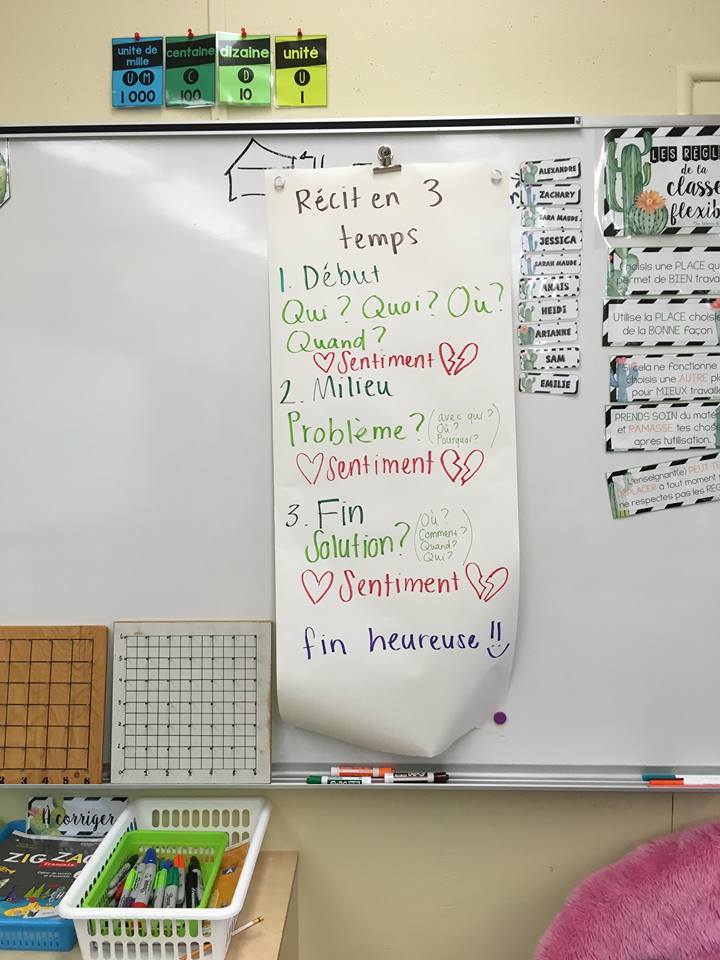 unité de mille
UM
1 000
centaine
C
100
dizaine
D
10
unité
U
1
Récit en 3
temps
1. Début
Qui? Quoi? Où?
Quand?
Sentiment
2. Milieu
Problème? (avec qui?
Où?
Pourquoi?)
Sentiment
3. Fin
Solution? (Où?
Comment?
Quand?
Qui?)
Sentiment
fin heureuse!!
ALEXANDRE
ZACHARY
SARA MAUDE
JESSICA
SARAH MAUDE
ANAIS
HEIDI
ARIANNE
SAM
EMILIE
LES RÈGL
de la
classe
flexib
Choisis une PLACE qu
permet de BIEN trava
Utilise la PLACE choisi
de la BONNE façon
Si cela ne fonctionne
choisis une AUTRE pl
pour MIEUX travaille
PRENDS SOIN du maté
et RAMASSE tes chos
après l'utilisation.
L'enseignant(e) PEUT TE
DÉPLACER à tout moment
ne respectes pas les RÈG
À corriger
ZIG ZA
français